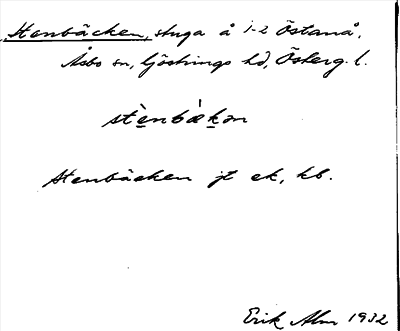 Stenbäcken, stuga å 1-2 Östanå,
Åsbo sn, Göstrings hd, Österg. l.
stènbækən
Stenbäcken jt ek, kb.
Erik Alm 1932